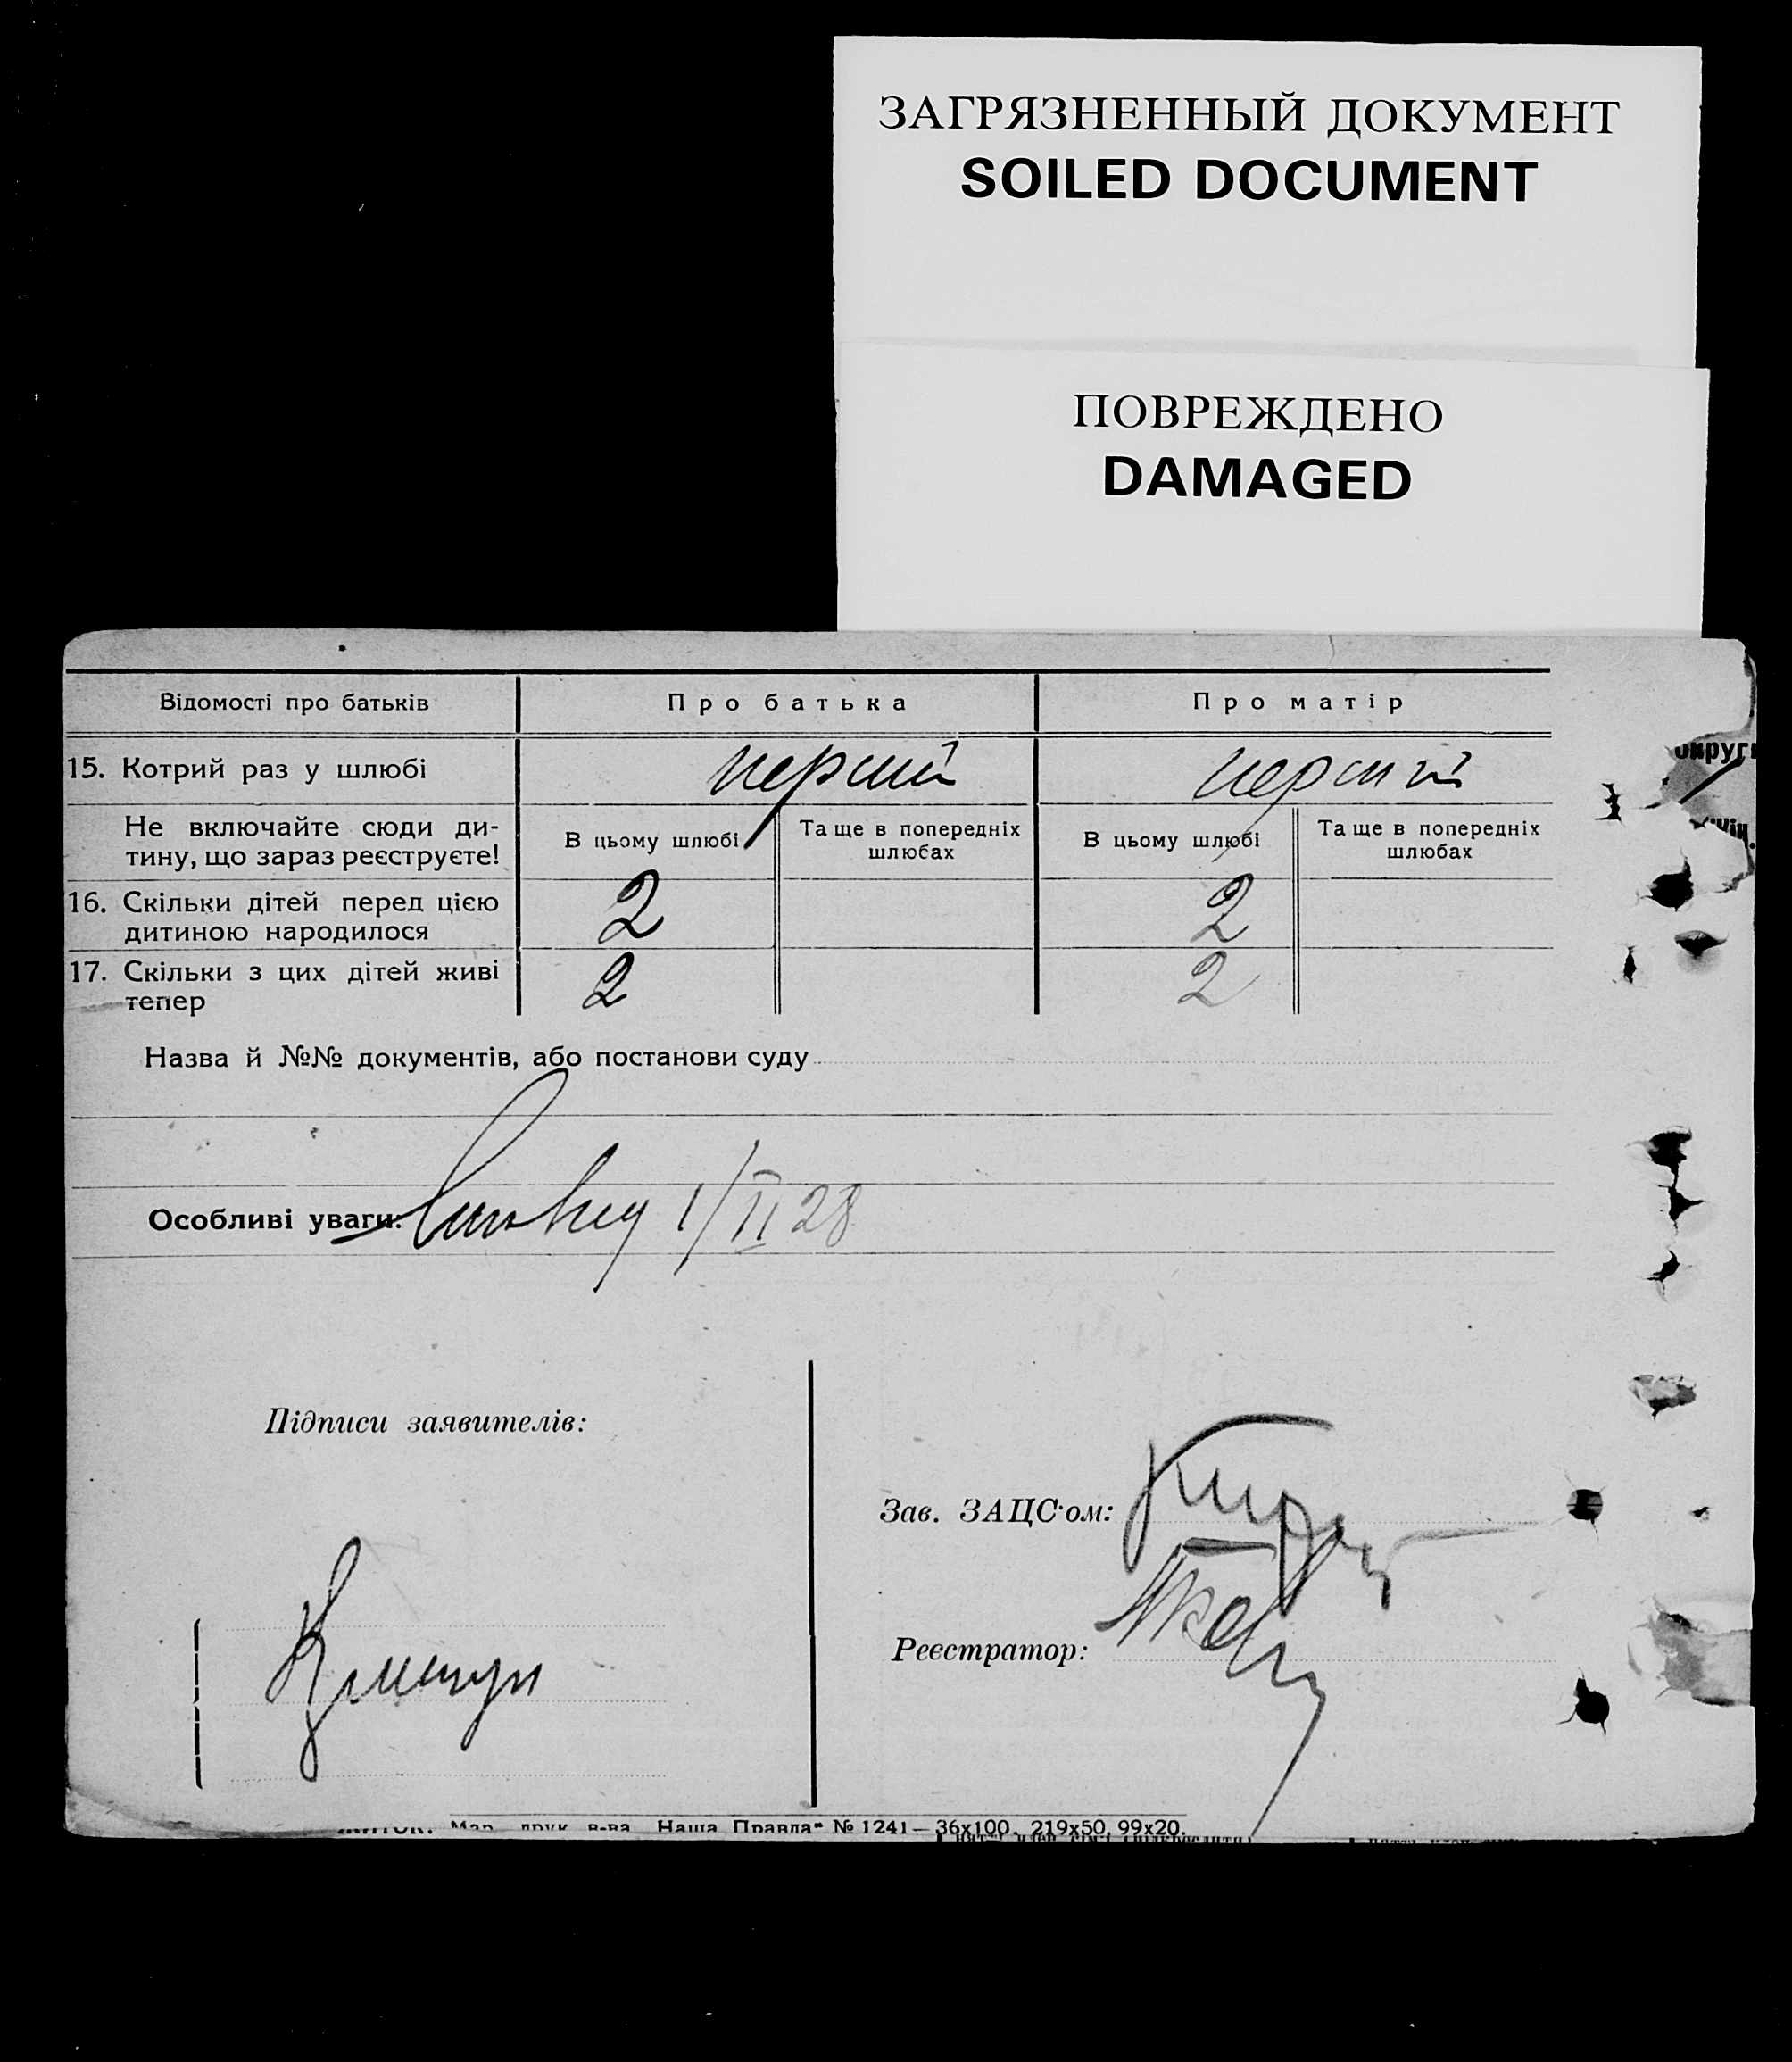 ЗАГРЯЗНЕННЫЙ ДОКУМЕНТ
SOILED DOCUMENT
ПОВРЕЖДЕНО
DAMAGED
Відомості про батьків
Про батька
Про матір
15. Котрий раз у шлюбі
перший
перший
округ
Не включайте сюди ди-
тину, що зараз реєструєте!
В цьому шлюбі
Та ще в попередніх
шлюбах
В цьому шлюбі
Та ще в попередніх
шлюбах
16. Скільки дітей перед цією
дитиною народилося
2
2
17. Скільки з цих дітей живі
тепер
2
2
Назва й №№ документів, або постанови суду
Особливі уваги:
1/II 28
Підписи заявителів:
Зав. ЗАЦС'ом:
Реєстратор:
Мар. друк. в-ва „Наша Правда" № 1241— 36х100. 219х50. 99х20.